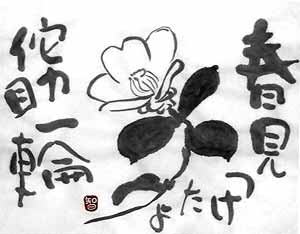 春見
つけたよ
侘助
一輪